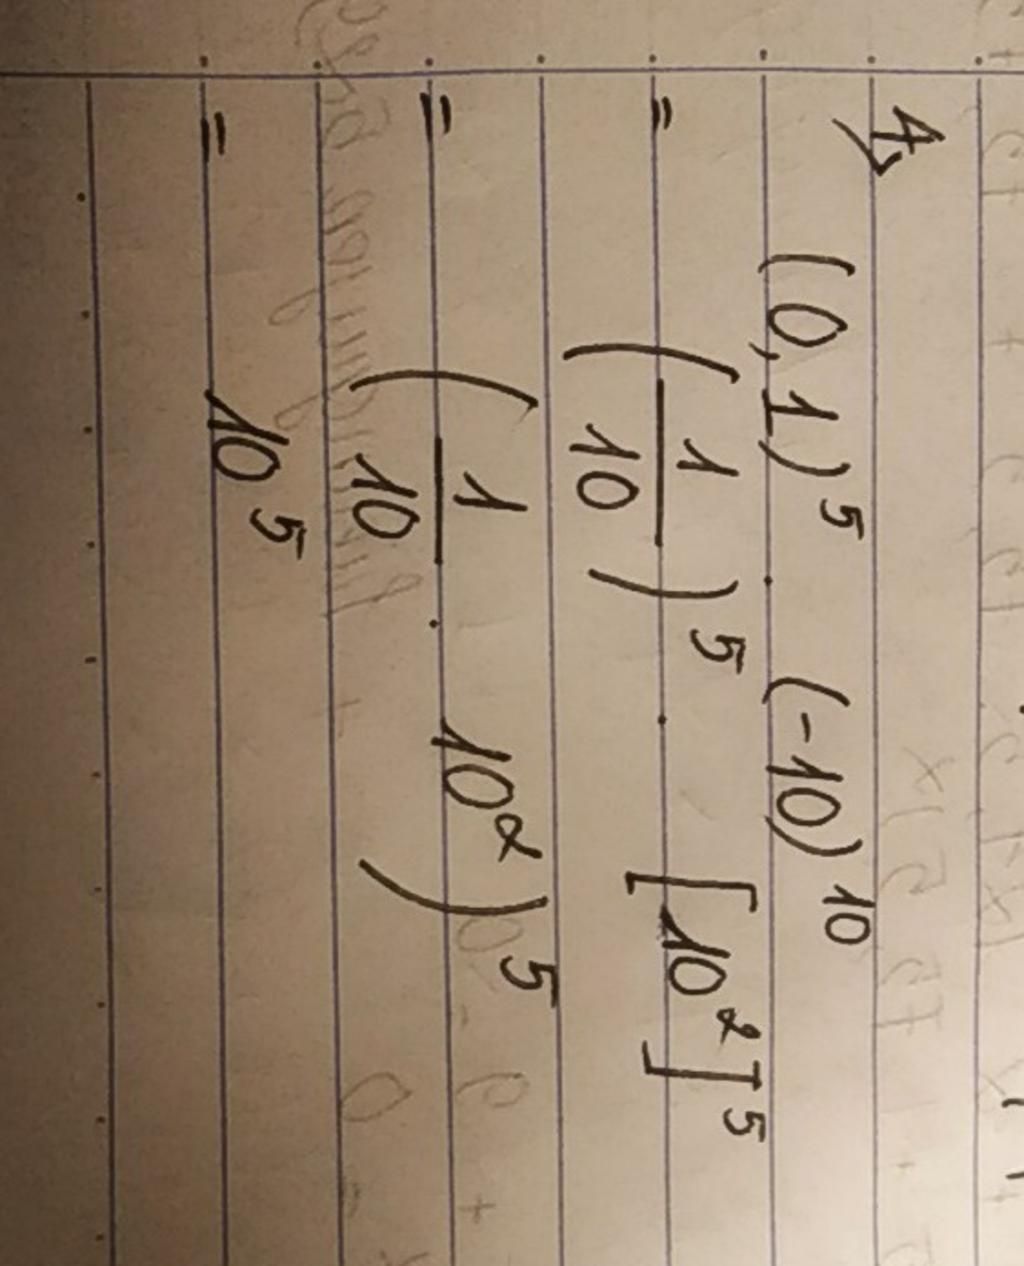 A,
(0,1)^5 · (-10)^10
= (1/10)^5 · [10^2]^5
= (1/10 · 10^2)^5
= 10^5